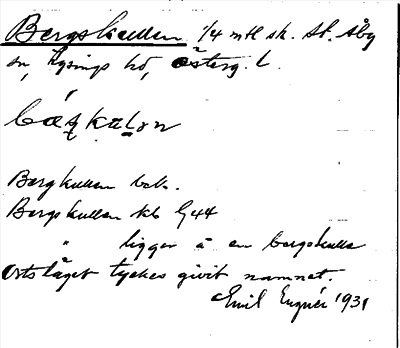 Bergskullen 1/4 mtl sk. St. Åby
sn, Lysings hd, Österg. l.
bæskulon
Bergkullen bek.
Bergskullen kb G44
" ligger å en bergskulle
Ortsläget tyckes givit namnet.
Emil Eugnér 1931